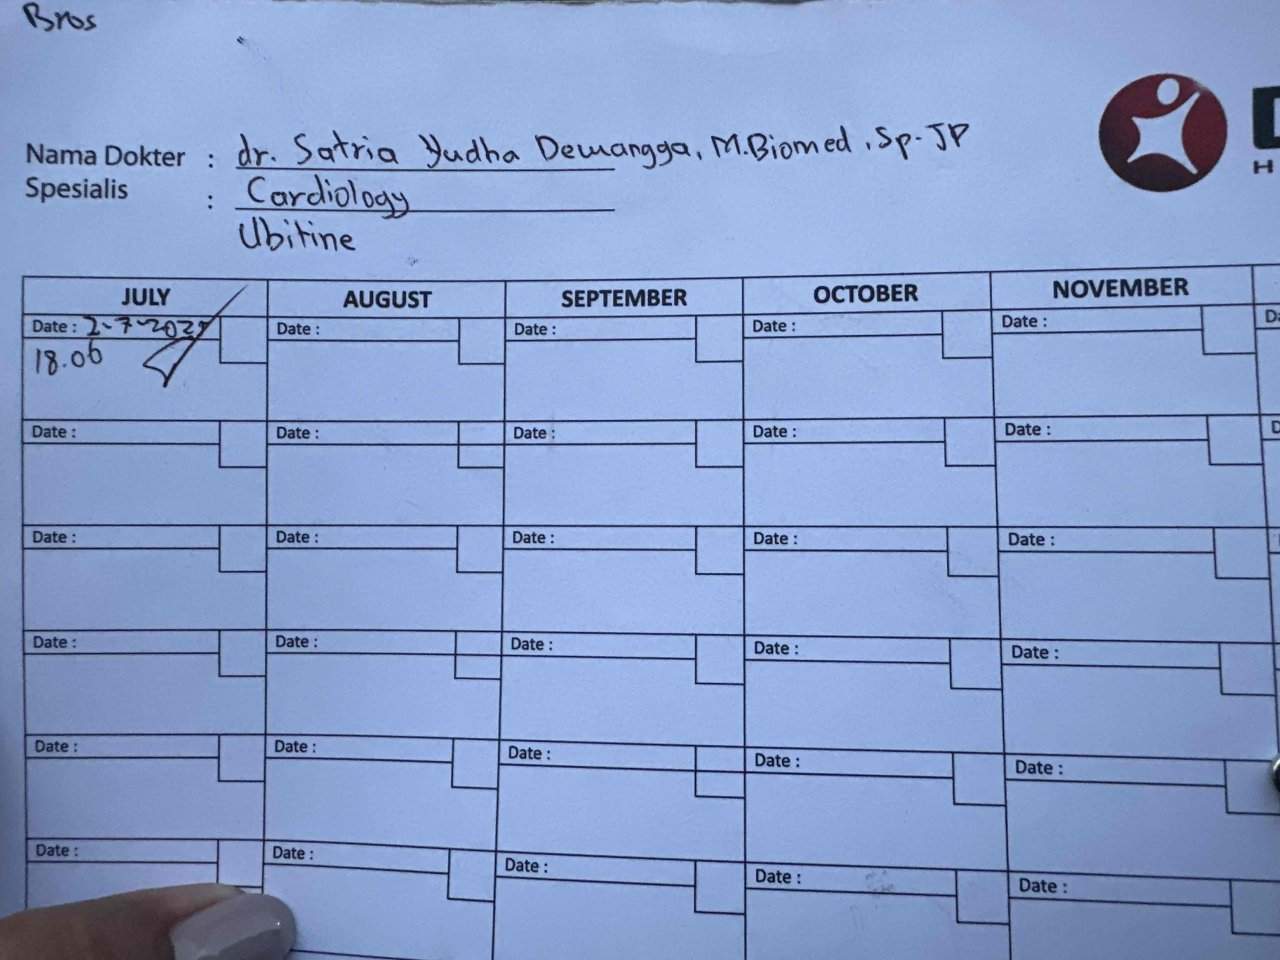 Bros
Nama Dokter : dr. Satria Yudha Dewangga, M.Biomed, Sp.JP
Spesialis : Cardiology
Ubitine
JULY AUGUST SEPTEMBER OCTOBER NOVEMBER
Date : Date : Date : Date : Date :
18.06
Date : Date : Date : Date : Date :
Date : Date : Date : Date : Date :
Date : Date : Date : Date : Date :
Date : Date : Date : Date : Date :
Date : Date : Date : Date : Date :